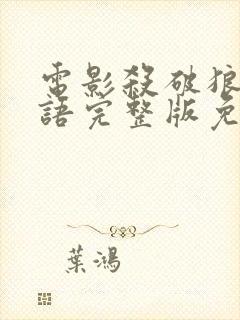 電影殺破狼
語完整版免
葉鴻